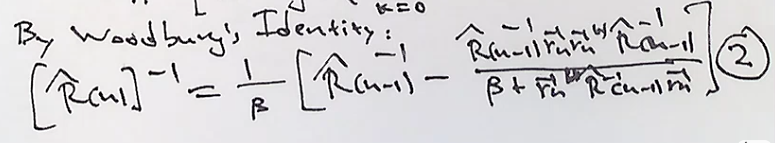 K=0
By Woodbury's Identity:
[R̂(n)]⁻¹ = 1/β [R̂⁻¹(n-1) - (R̂⁻¹(n-1) r̄n r̄nᴴ R̂⁻¹(n-1)) / (β + r̄nᴴ R̂⁻¹(n-1) r̄n)] ②